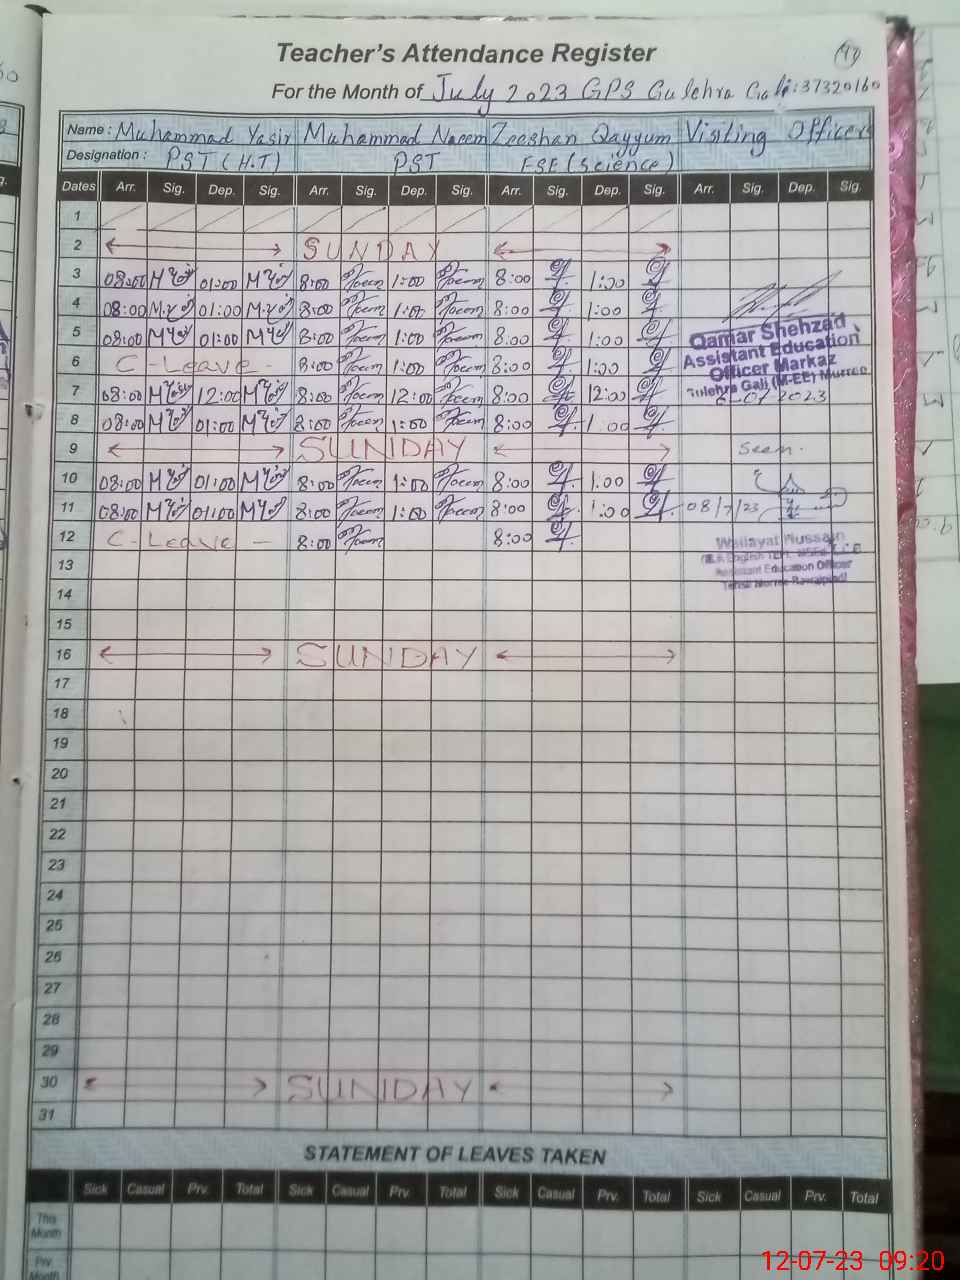 Teacher's Attendance Register
For the Month of July 2023 GPS Gulehra Gali:37320160
Name: Muhammad Yasir Muhammad Naeem Zeeshan Qayyum Visiting Officers
Designation: PST (H.T) PST ESE (Science)
Dates Arr. Sig. Dep. Sig. Arr. Sig. Dep. Sig. Arr. Sig. Dep. Sig. Arr. Sig. Dep. Sig.
1
2 SUNDAY
3 08:00 01:00 8:00 1:00 8:00 1:00
4 08:00 01:00 8:00 1:00 8:00 1:00
5 08:00 01:00 8:00 1:00 8:00 1:00
Qamar Shehzad
Assistant Education
Officer Markaz
Gulehra Gali (M-EE) Murree
6 C-Leave- 8:00 1:00 8:00 1:00
7 08:00 12:00 8:00 12:00 8:00 12:00 -07-2023
8 08:00 01:00 8:00 1:00 8:00 1:00
9 SUNDAY Seen.
10 08:00 01:00 8:00 1:00 8:00 1:00
11 08:00 01:00 8:00 1:00 8:00 1:00 08/7/23
12 C-Leave - 8:00 8:00
Wailayat Hussain
Assistant Education Officer
13
14
15
16 SUNDAY
17
18
19
20
21
22
23
24
25
26
27
28
29
30 SUNDAY
31
STATEMENT OF LEAVES TAKEN
Sick Casual Prv. Total Sick Casual Prv. Total Sick Casual Prv. Total Sick Casual Prv. Total
This
Month
Prv
Month
12-07-23 09:20